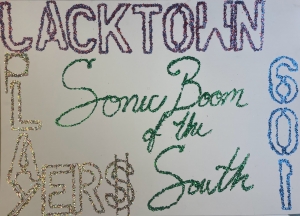 LACKTOWN
PLAYER$
Sonic Boom
of the
South
601